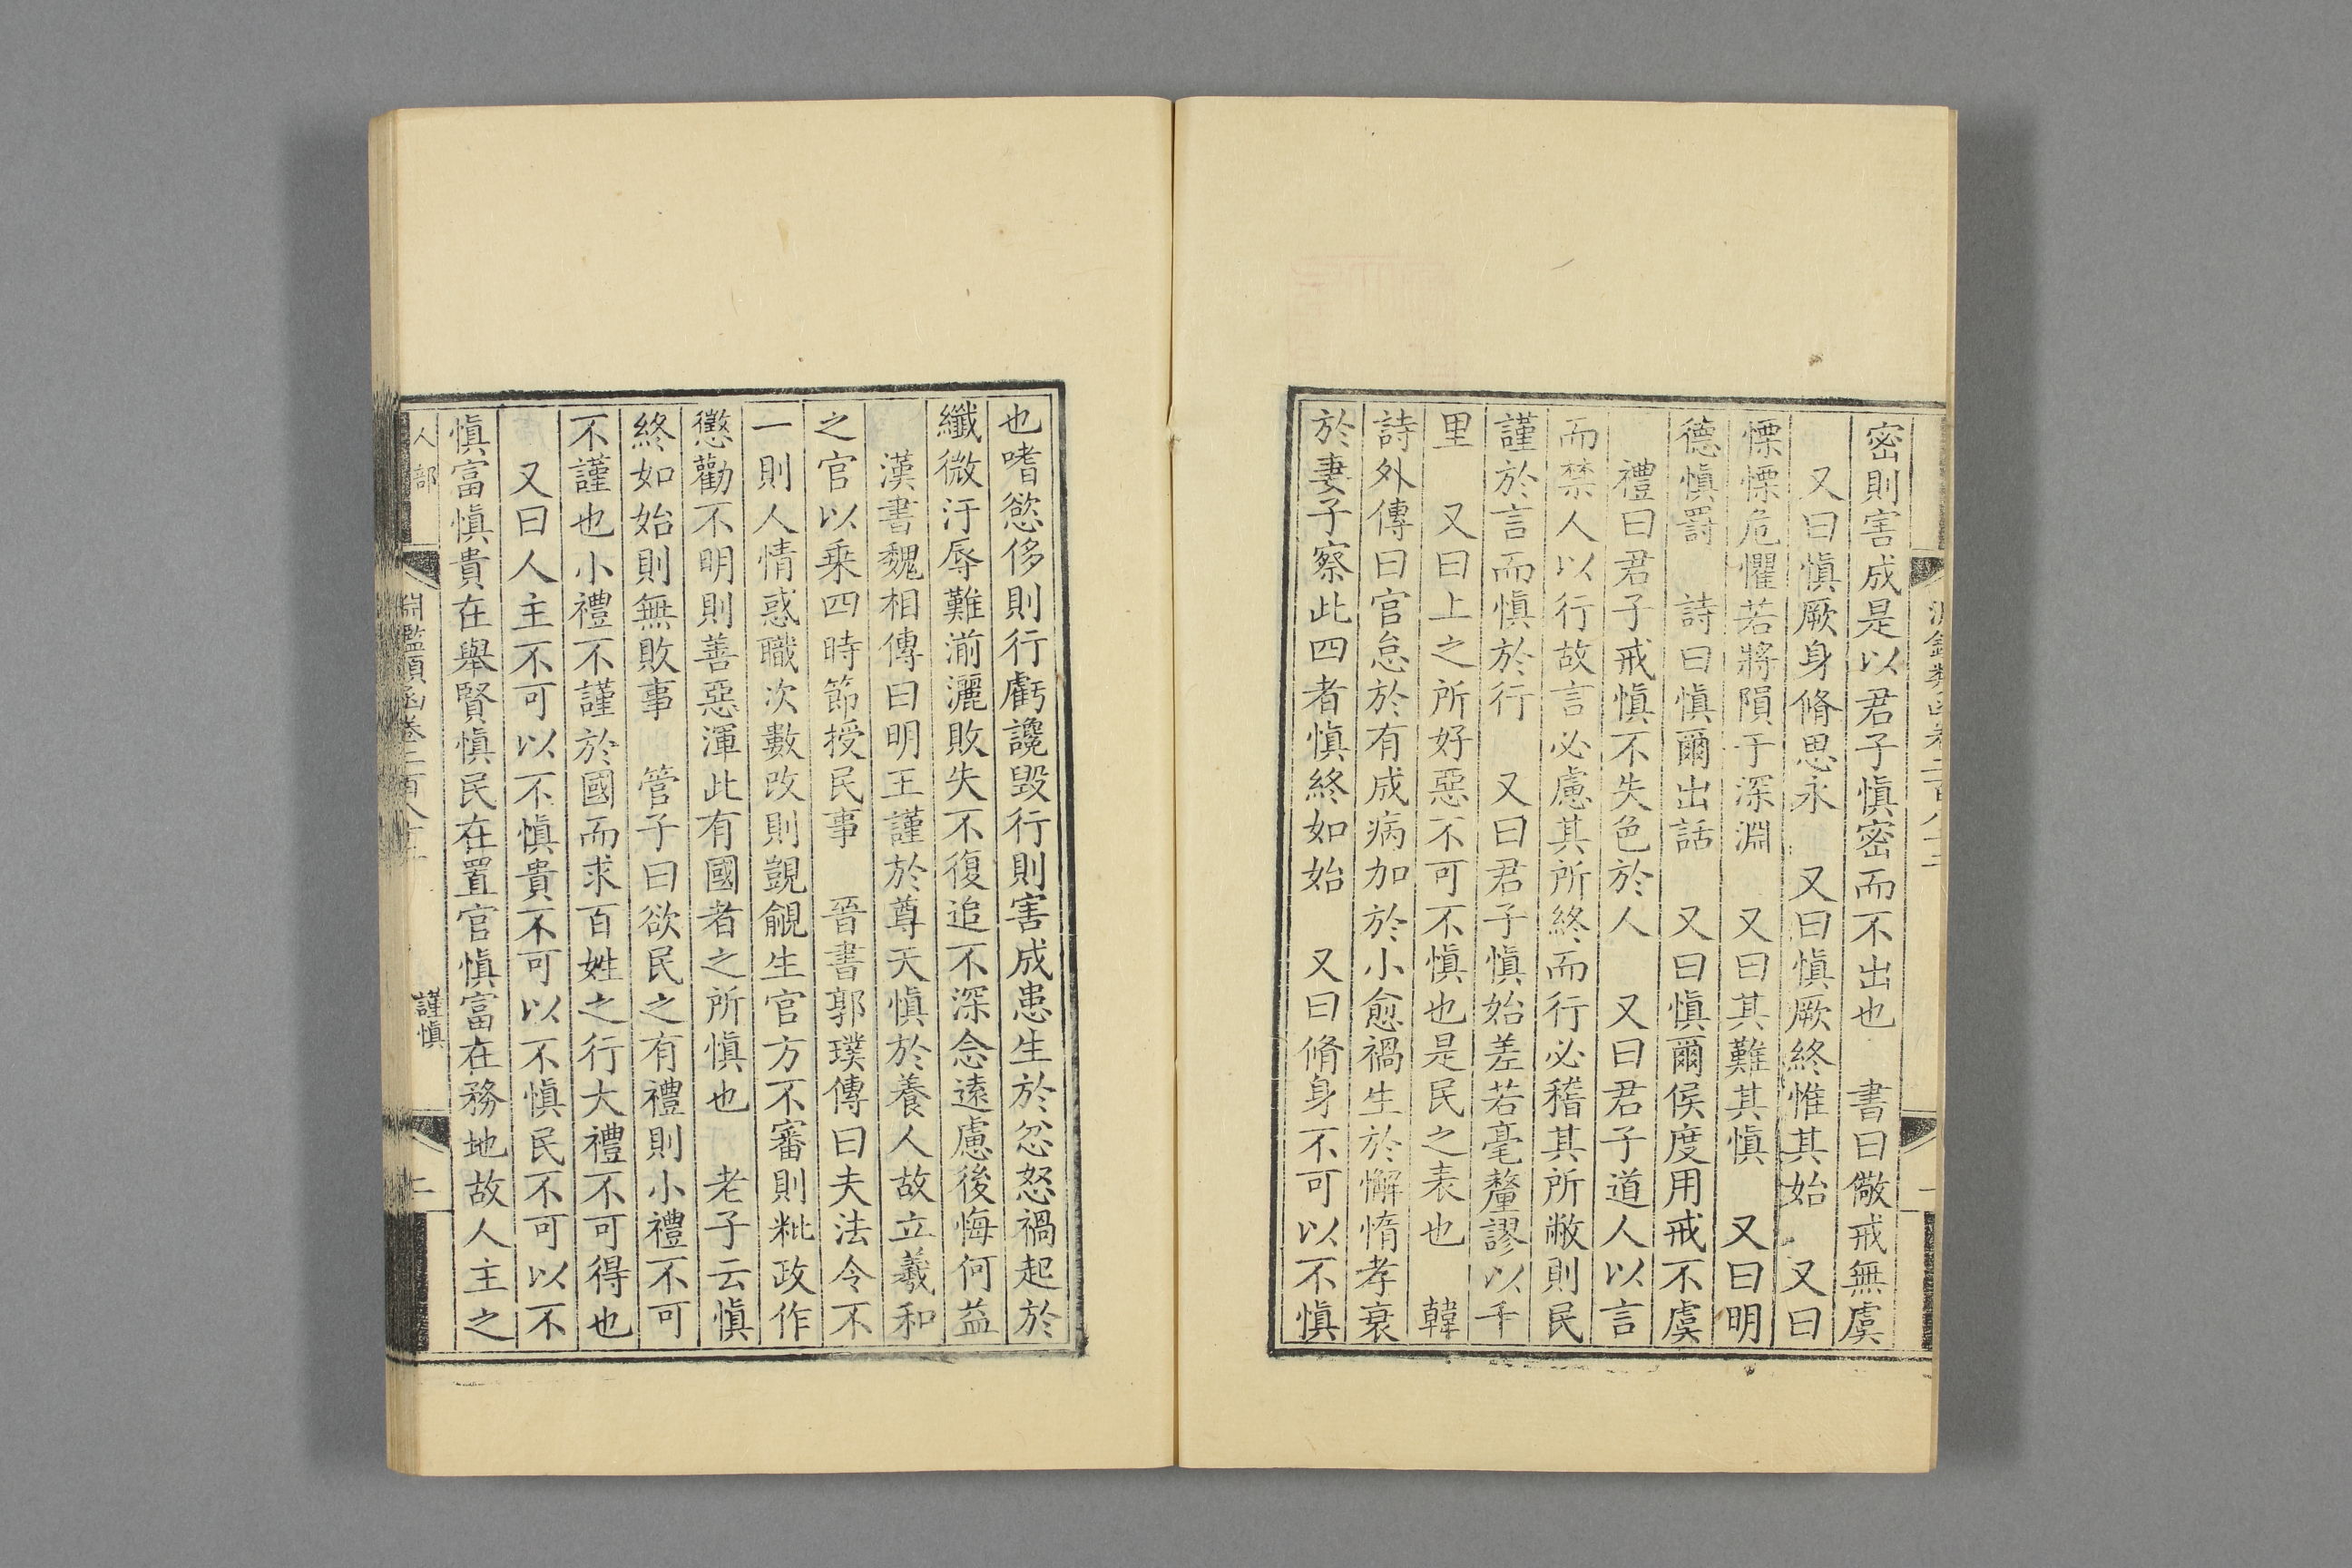 密則害成是以君子慎密而不出也　書曰儆戒無虞
又曰慎厥身脩思永　又曰慎厥終惟其始　又曰
慄慄危懼若將隕于深淵　又曰其難其慎　又曰明
德慎罰　詩曰慎爾出話　又曰慎爾侯度用戒不虞
禮曰君子戒慎不失色於人　又曰君子道人以言
而禁人以行故言必慮其所終而行必稽其所敝則民
謹於言而慎於行　又曰君子慎始差若毫釐謬以千
里　又曰上之所好惡不可不慎也是民之表也　韓
詩外傳曰官怠於有成病加於小愈禍生於懈惰孝衰
於妻子察此四者慎終如始　又曰脩身不可以不慎
也嗜慾侈則行虧讒毀行則害成患生於忿怒禍起於
纖微汙辱難湔灑敗失不復追不深念遠慮後悔何益
漢書魏相傳曰明王謹於尊天慎於養人故立羲和
之官以乗四時節授民事　晉書郭璞傳曰夫法令不
一則人情惑職次數改則覬覦生官方不審則粃政作
懲勸不明則善惡渾此有國者之所慎也　老子云慎
終如始則無敗事　管子曰欲民之有禮則小禮不可
不謹也小禮不謹於國而求百姓之行大禮不可得也
又曰人主不可以不慎貴不可以不慎民不可以不
慎富慎貴在舉賢慎民在置官慎富在務地故人主之
人部　淵鑑類函卷二百八十二　謹慎　二